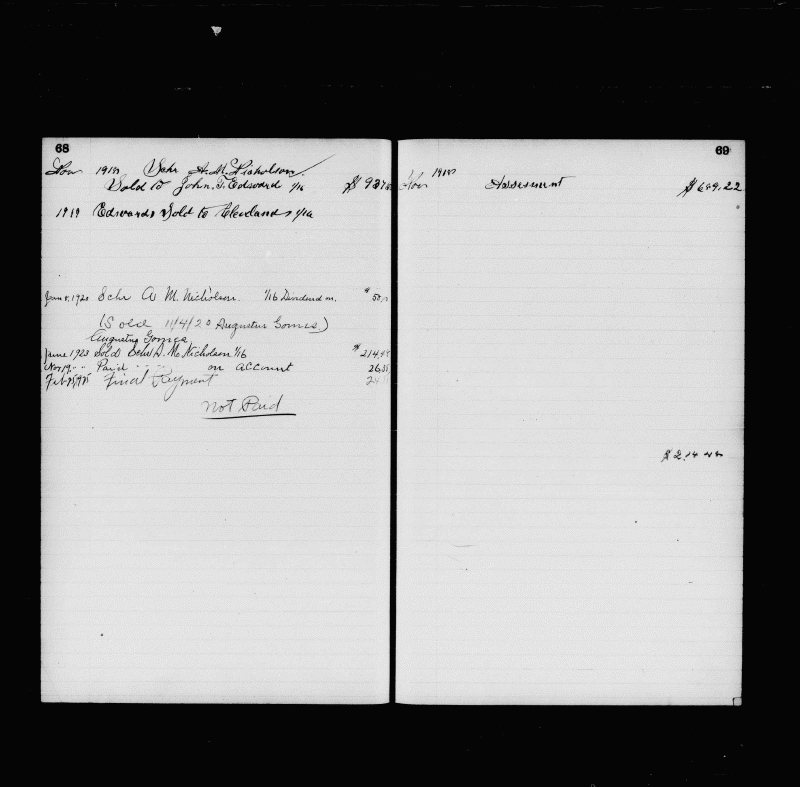 68
Nov 1918 Schr A. M. Nicholson
Sold to John. T. Edward 1/16 $ 937
1919 Edwards Sold to Clevelands 1/16
June 8, 1920 Schr A M. Nicholson. 1/16 Dividend on. $ 50
(Sold 11/4/20 Augustus Gomes)
Augustus Gomes
June 1923 Sold Schr A. M. Nicholson 1/16 $ 214,48
Nov, 19, " " Paid " " " on account 26,
Feb 25, 1925 Final Payment 24
Not Paid
69
Nov 1918 Assessment $ 689.22
$ 214 48